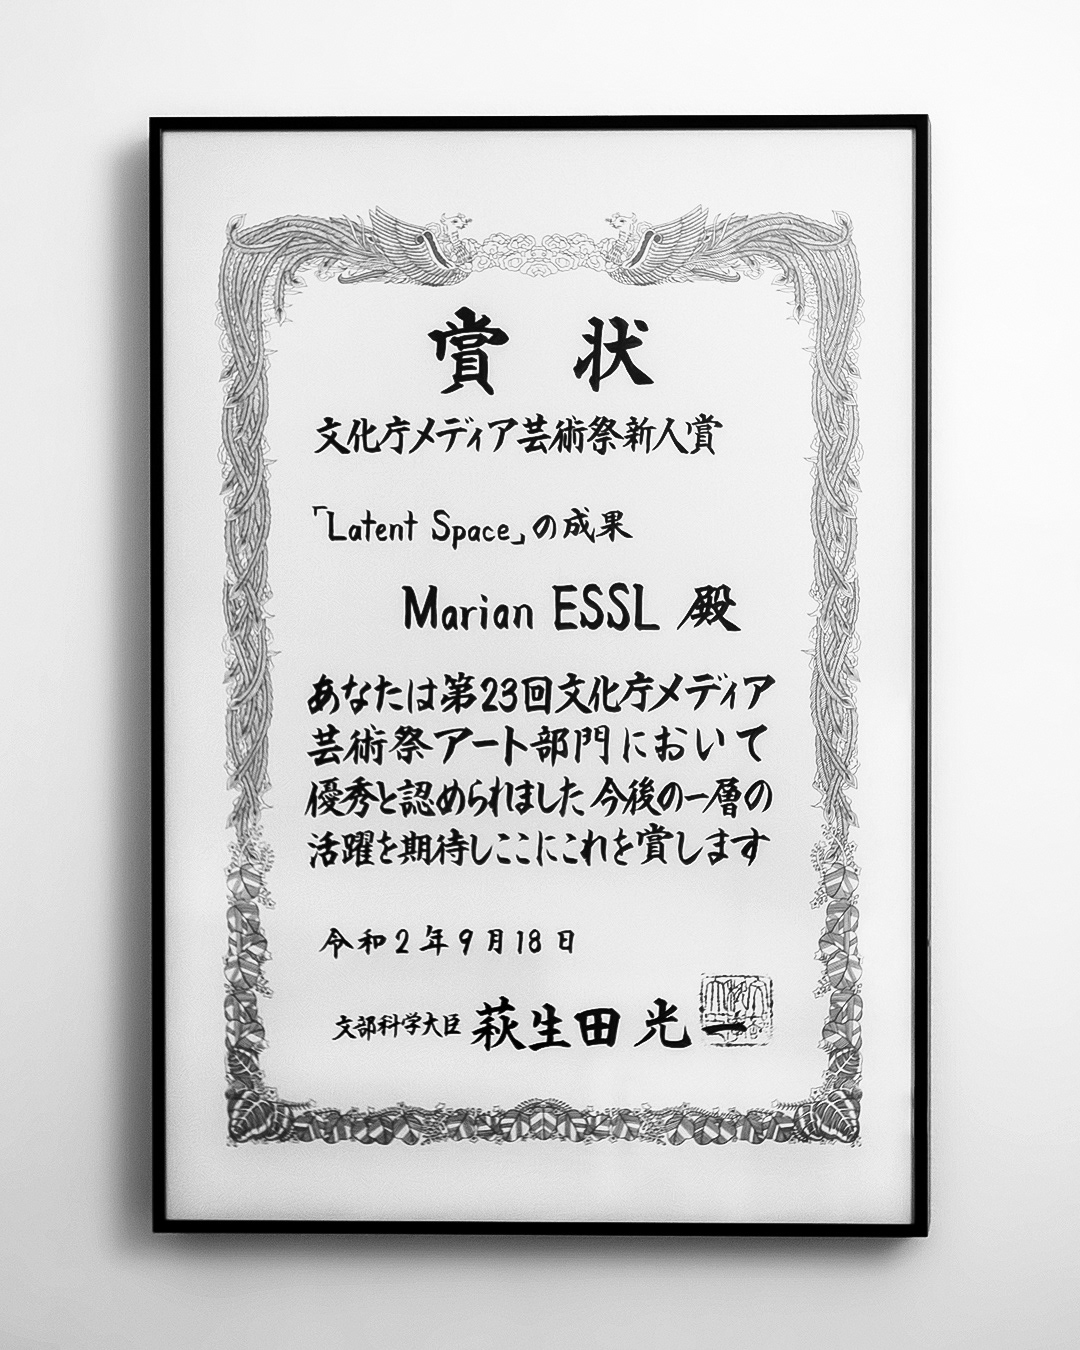 賞状
文化庁メディア芸術祭新人賞
「Latent Space」の成果
Marian ESSL 殿
あなたは第23回文化庁メディア
芸術祭アート部門において
優秀と認められました今後の一層の
活躍を期待しここにこれを賞します
令和2年9月18日
文部科学大臣 萩生田光一